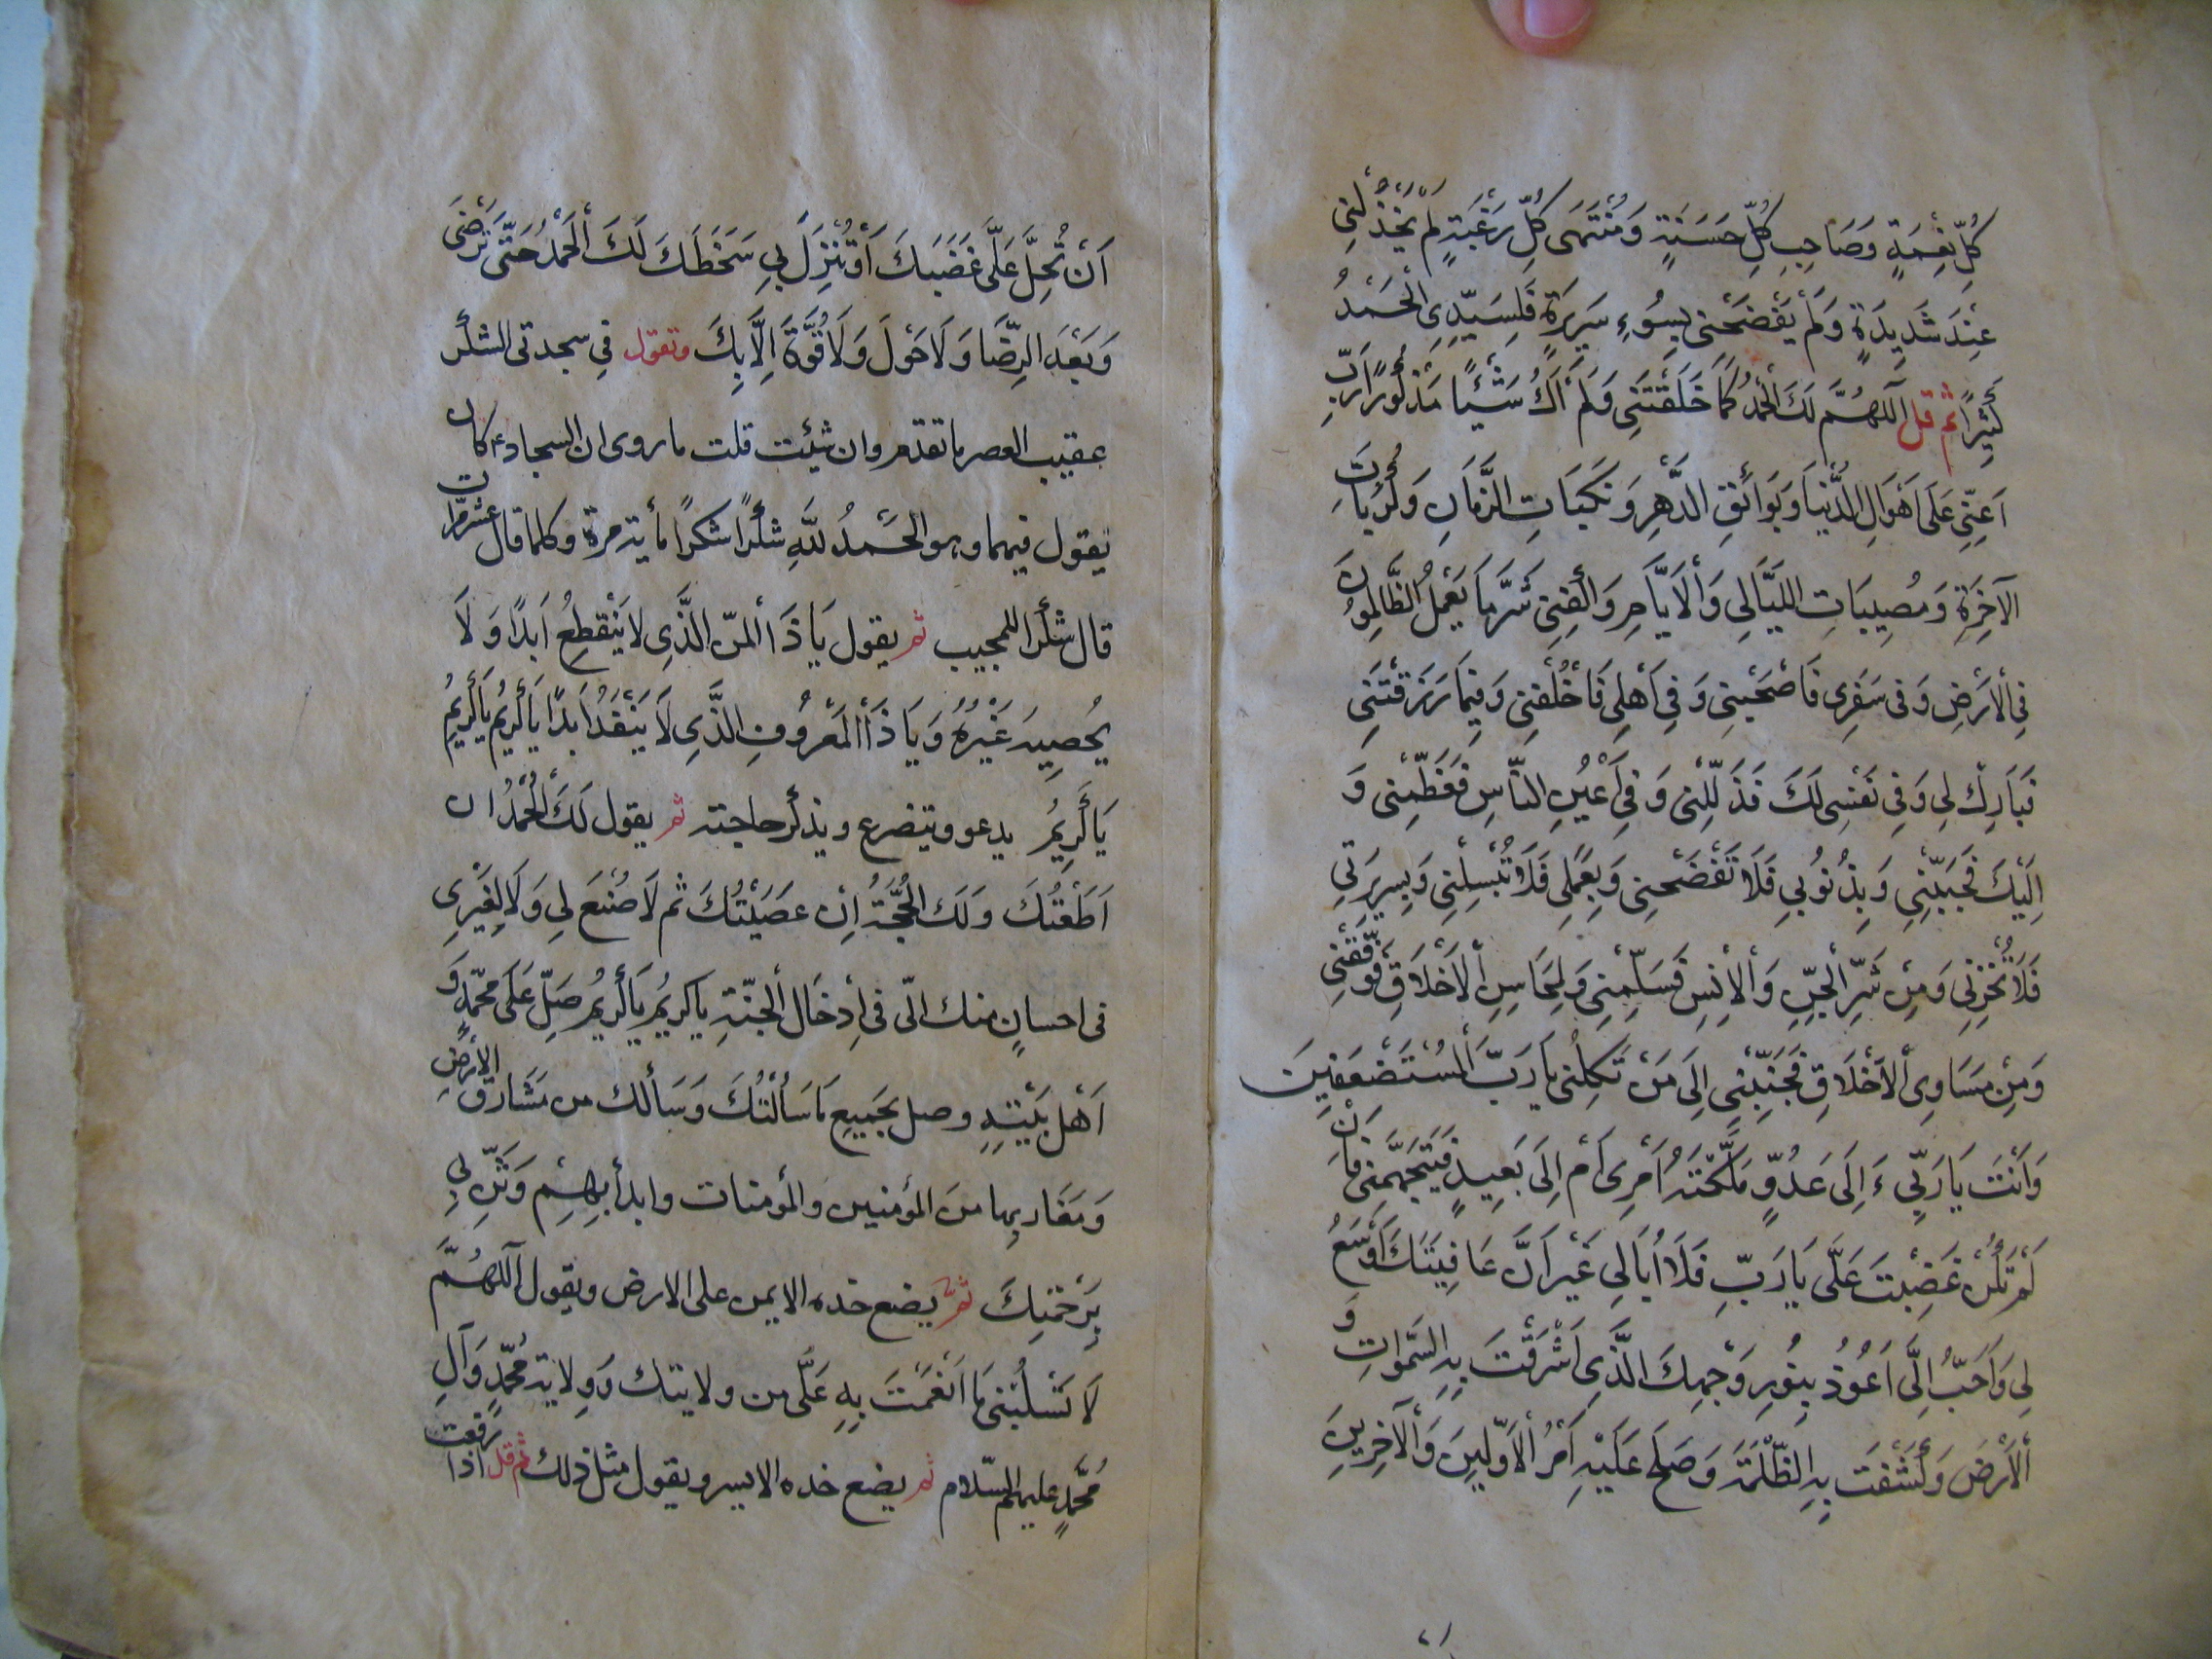 كُلِّ نِعْمَةٍ وَصَاحِبِ كُلِّ حَسَنَةٍ وَمُنْتَهَى كُلِّ رَغْبَةٍ لَمْ يَخْذُلْنِى
عِنْدَ شَدِيدَةٍ وَلَمْ يَفْضَحْنِى بِسُوءِ سَرِيرَةٍ فَلِسَيِّدِى الْحَمْدُ
كَثِيرًا ثم قل اَللّهُمَّ لَكَ الْحَمْدُ كَمَا خَلَقْتَنِى وَلَمْ اَكُ شَيْئًا مَذْكُورًا رَبِّ
اَعِنِّى عَلَى اَهْوَالِ الدُّنْيَا وَبَوَائِقِ الدَّهْرِ وَنَكَبَاتِ الزَّمَانِ وَكُرُبَاتِ
الآخِرَةِ وَمُصِيبَاتِ اللَّيَالِى وَالْأَيَّامِ وَاكْفِنِى شَرَّ مَا يَعْمَلُ الظَّالِمُونَ
فِى الْأَرْضِ وَفِى سَفَرِى فَاصْحَبْنِى وَفِى اَهْلِى فَاخْلُفْنِى وَفِيمَا رَزَقْتَنِى
فَبَارِكْ لِى وَفِى نَفْسِى لَكَ فَذَلِّلْنِى وَفِى اَعْيُنِ النَّاسِ فَعَظِّمْنِى وَ
اِلَيْكَ فَحَبِّبْنِى وَبِذُنُوبِى فَلَا تَفْضَحْنِى وَبِعَمَلِى فَلَا تُبْسِلْنِى وَبِسَرِيرَتِى
فَلَا تُخْزِنِى وَمِنْ شَرِّ الْجِنِّ وَالْإِنْسِ فَسَلِّمْنِى وَلِمَحَاسِنِ الْأَخْلَاقِ فَوَفِّقْنِى
وَمِنْ مَسَاوِى الْأَخْلَاقِ فَجَنِّبْنِى اِلَى مَنْ تَكِلُنِى يَا رَبَّ الْمُسْتَضْعَفِينَ
وَاَنْتَ يَا رَبِّى ءَاِلَى عَدُوٍّ مَلَّكْتَهُ اَمْرِى اَمْ اِلَى بَعِيدٍ فَيَتَجَهَّمَنِى فَاِنْ
لَمْ تَكُنْ غَضِبْتَ عَلَىَّ يَا رَبِّ فَلَا اُبَالِى غَيْرَ اَنَّ عَافِيَتَكَ اَوْسَعُ
لِى وَاَحَبُّ اِلَىَّ اَعُوذُ بِنُورِ وَجْهِكَ الَّذِى اَشْرَقَتْ بِهِ السَّمٰوَاتِ وَ
الْأَرْضَ وَكُشِفَتْ بِهِ الظُّلْمَةُ وَصَلَحَ عَلَيْهِ اَمْرُ الْأَوَّلِينَ وَالْآخِرِينَ
اَنْ تُحِلَّ عَلَىَّ غَضَبَكَ اَوْ تُنْزِلَ بِى سَخَطَكَ لَكَ الْحَمْدُ حَتّٰى تَرْضَى
وَبَعْدَ الرِّضَا وَلَا حَوْلَ وَلَا قُوَّةَ اِلَّا بِكَ وتقول فى سجدتى الشكر
عقيب العصر ما تقدّم وان شئت قلت ما روى ان السجاد ع كان
يقول فيهما وهو الحَمْدُ لِلّهِ شكرًا شكرًا مأية مرة وكلما قال عشر مرّات
قال شكرًا للمجيب ثم يقول يَا ذَا الْمَنّ الَّذِى لَا يَنْقَطِعُ اَبَدًا وَلَا
يُحْصِيهِ غَيْرُهُ وَيَا ذَا الْمَعْرُوفِ الَّذِى لَا يَنْفَدُ اَبَدًا يَا كَرِيمُ يَا كَرِيمُ
يَا كَرِيمُ يدعو ويتضرع ويذكر حاجته ثم يقول لَكَ الْحَمْدُ ان
اَطَعْتُكَ وَلَكَ الْحُجَّةُ اِنْ عَصَيْتُكَ ثم لَا صُنْعَ لِى وَلَا لِغَيْرِى
فى احسانٍ منك الىّ فى اِدْخَالِ الْجَنَّةِ يا كريمُ يَا كَرِيمُ صَلِّ عَلَى محمّدٍ وَ
اَهْلِ بَيْتِهِ وصل بِجَمِيعِ مَا سَأَلْتُكَ وَسَأَلَكَ من مَشَارِقِ الارْضِ
وَمَغَارِبِهَا مِنَ المؤمنين والمؤمنات وابدأ بِهِمْ وَثَنِّ بِى
بِرَحْمَتِكَ ثم يضع خده الايمن على الارض ويقول اَللّهُمَّ
لَا تَسْلُبْنِى مَا اَنْعَمْتَ بِهِ عَلَىَّ من ولايتك وَوِلَايَةِ مُحَمَّدٍ وَآلِ
مُحَمَّدٍ عليهم السّلام ثم يضع خده الايسر ويقول مثل ذلك ثم قل اذا رفعت